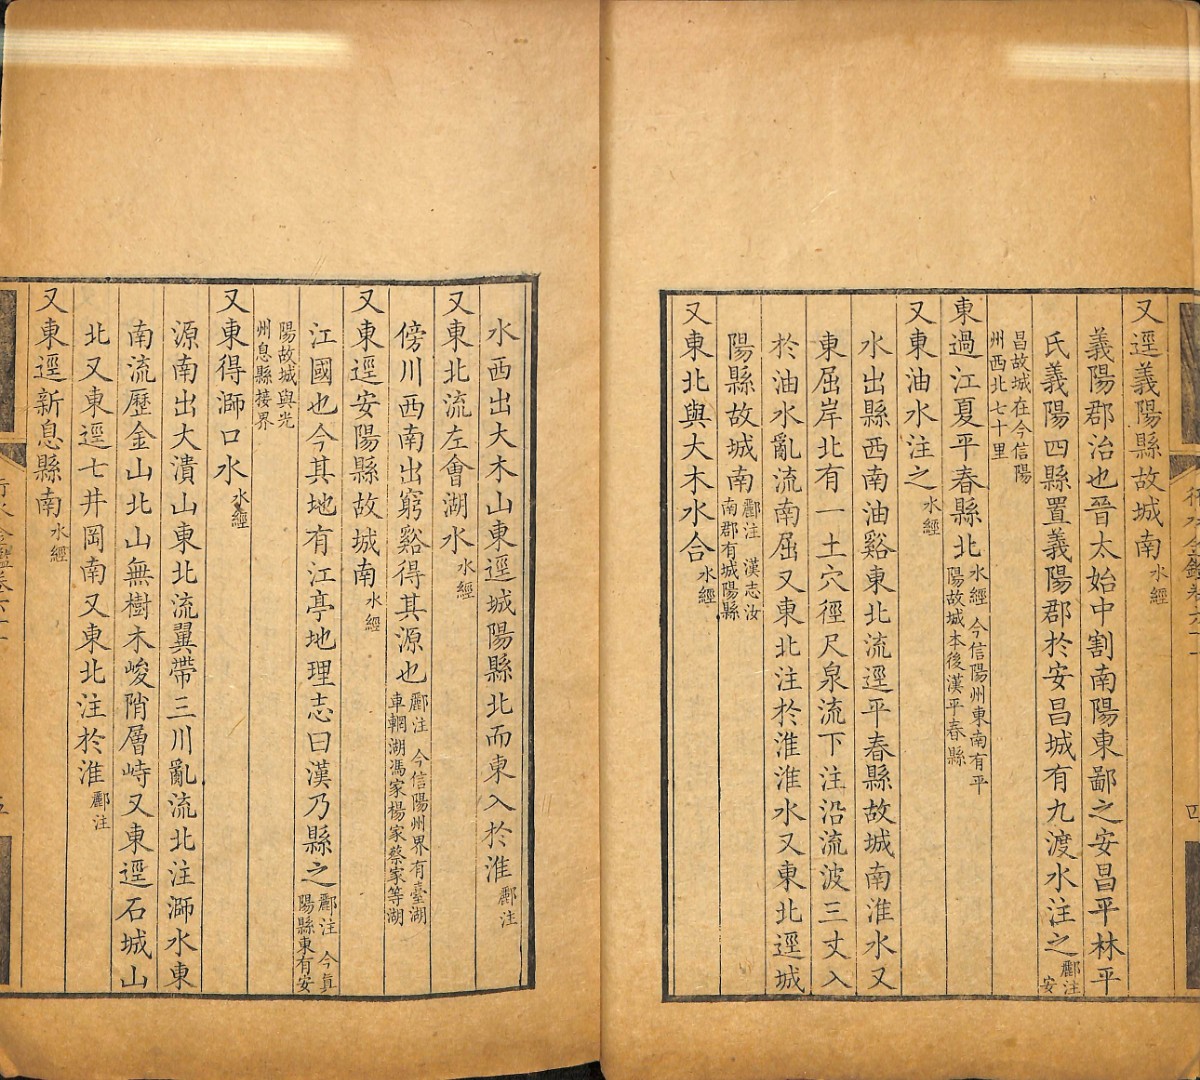 又逕義陽縣故城南水經
義陽郡治也晉太始中割南陽東鄙之安昌平林平
氏義陽四縣置義陽郡於安昌城有九渡水注之酈注安
昌故城在今信陽
州西北七十里
東過江夏平春縣北水經今信陽州東南有平
陽故城本後漢平春縣
又東油水注之水經
水出縣西南油谿東北流逕平春縣故城南淮水又
東屈岸北有一土穴徑尺泉流下注沿流波三丈入
於油水亂流南屈又東北注於淮淮水又東北逕城
陽縣故城南酈注漢志汝
南郡有城陽縣
又東北與大木水合水經
水西出大木山東逕城陽縣北而東入於淮酈注
又東北流左會湖水水經
傍川西南出窮谿得其源也酈注今信陽州界有臺湖
車輞湖馮家楊家蔡家等湖
又東逕安陽縣故城南水經
江國也今其地有江亭地理志曰漢乃縣之酈注今真
陽縣東有安
陽故城與光
州息縣接界
又東得溮口水水經
源南出大潰山東北流翼帶三川亂流北注溮水東
南流歷金山北山無樹木峻陗層峙又東逕石城山
北又東逕七井岡南又東北注於淮酈注
又東逕新息縣南水經